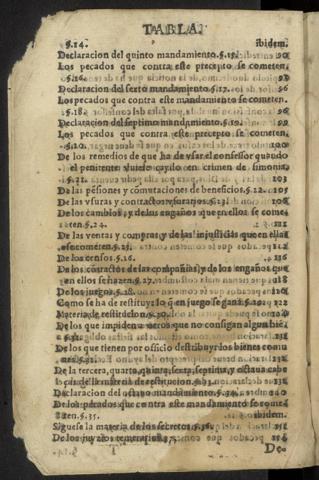 TABLA.
§.14. ibidem.
Declaracion del quinto mandamiento.§.15. 90
Los pecados que contra este precepto se cometen.
§.16. 92
Declaracion del sexto mandamiento §.17. 96
Los pecados que contra este mandamiento se cometen.
§.18.
Declaracion del septimo mandamiento. §.19. 99
Los pecados que contra este precepto se cometen.
§.20. 100
De los remedios de que ha de vsar el confessor quando
el penitente vuiere caydo en crimen de simonia
§.21. 103
De las pēsiones y cōmutaciones de beneficios.§.22. 105
De las vsuras y contractos vsurarios.§.23.
De los cambios, y de los engaños que en ellos se come
ten.§.24.
De las ventas y compras, y de las injusticias que en ellas
se cometen.§.25. 112
De los censos.§.26. 116
De los cōtractos de las compañias, y de los engaños que
en ellos se hazen.§.27. 117
De los juegos.§.28. 118
Como se ha de restituyr lo q̄ en juego se gana.§.29. 122
Materia de restitucion.§.30.
De los que impiden a otros que no consigan algun biē.
§.31.
De los que tienen por officio destribuyr los bienes comu
nes.§.32.
De la tercera, quarta, quinta, sexta, septima, y octaua cabe
ça de la materia de restitucion.§.33.
Declaracion del octauo mandamiento.§.34.
De los pecados que contra este mandamiento se come
ten.§.35. ibidem.
Siguese la materia de los secretos.§.36. 151
De los juyzios temerarios.
De-